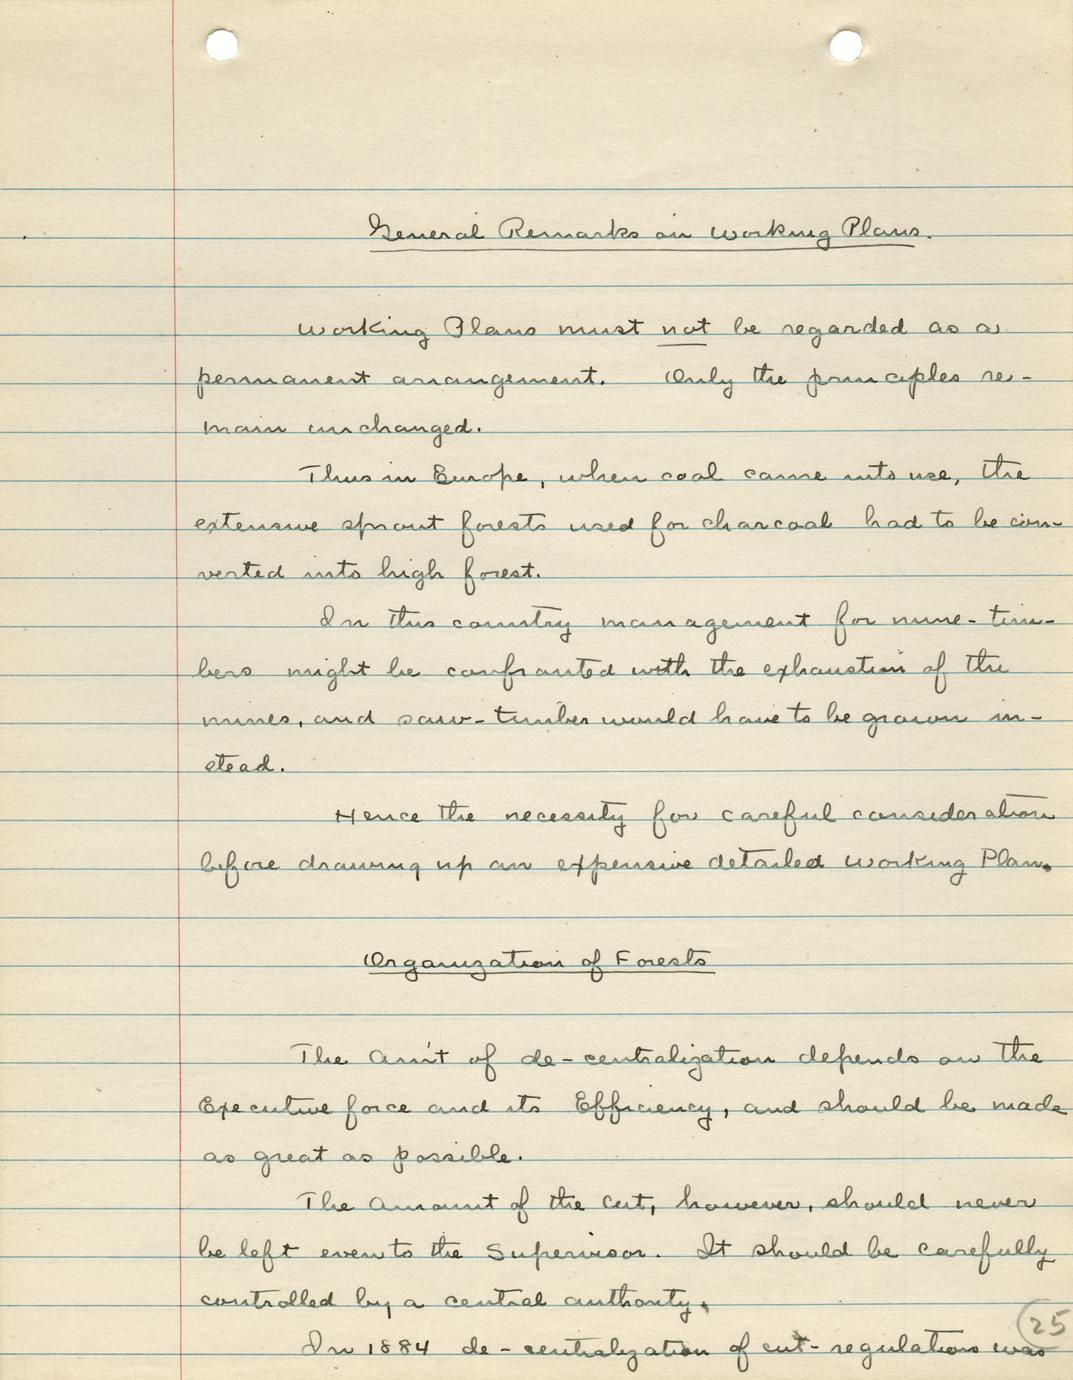 General Remarks on Working Plans.
Working Plans must not be regarded as a
permanent arrangement. Only the principles re-
main unchanged.
Thus in Europe, when coal came into use, the
extensive sprout forests used for charcoal had to be con-
verted into high forest.
In this country management for mine-tim-
bers might be confronted with the exhaustion of the
mines, and saw-timber would have to be grown in-
stead.
Hence the necessity for careful consideration
before drawing up an expensive detailed Working Plan.
Organization of Forests
The Am't of de-centralization depends on the
Executive force and its Efficiency, and should be made
as great as possible.
The Amount of the cut, however, should never
be left even to the Supervisor. It should be carefully
controlled by a central authority.
In 1884 de-centralization of cut-regulation was
25